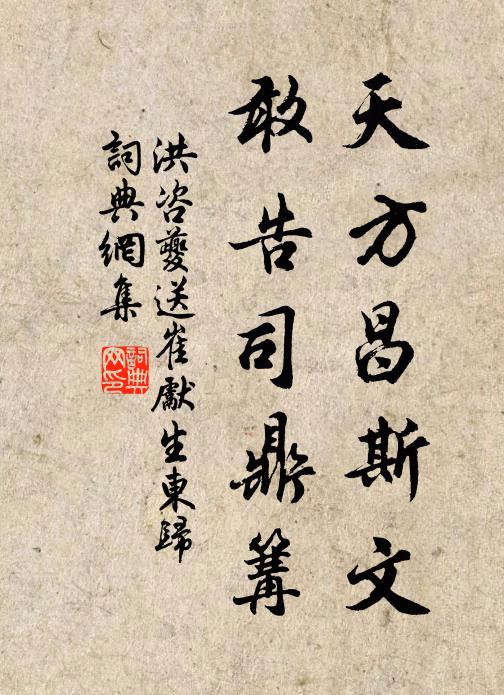 天方昌斯文
敢告司鼎篝
洪咨夔送崔獻生東歸
詞典網集
詞典
网印